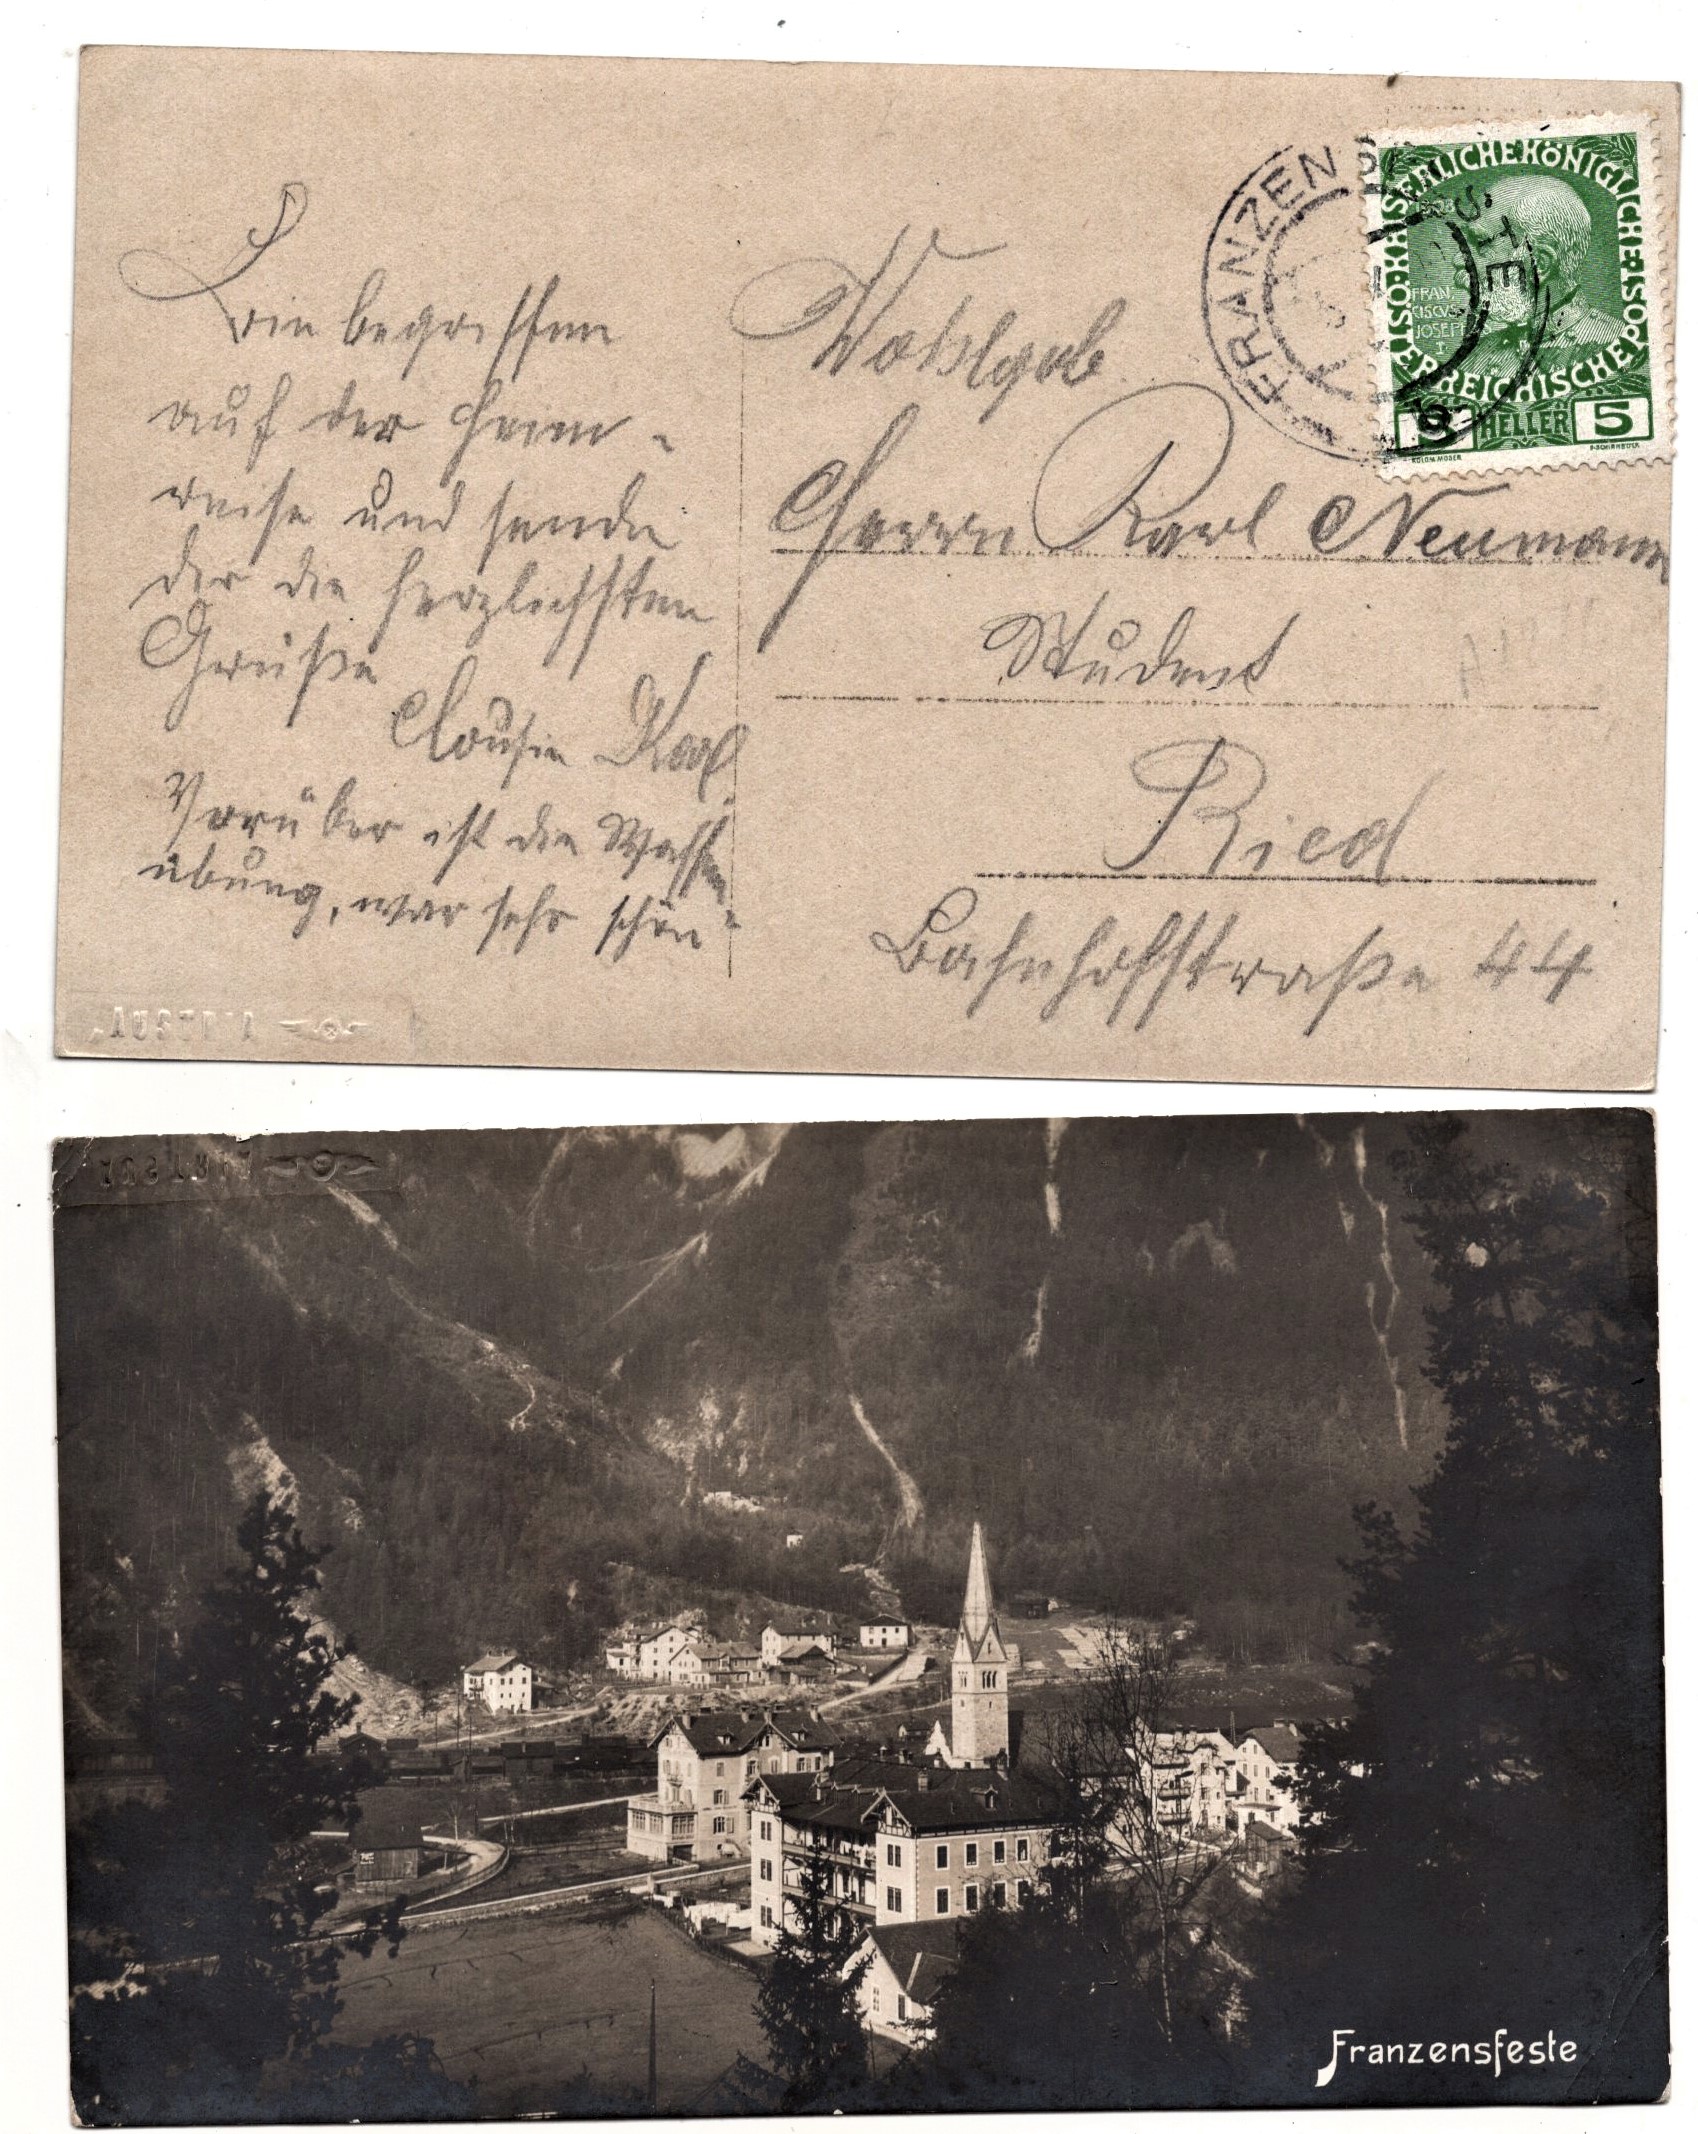 Bin begriffen
auf der Heim-
reise und sende
dir die herzlichsten
Grüße
Cousin Karl
Vorüber ist die Waffen
übung, war sehr schön
Wohlgeb.
Herrn Karl Neumann
Student
Ried
Bahnhofstraße 44
FRANZENSFESTE
KAISERLICHE KÖNIGLICHE ÖSTERREICHISCHE POST
FRAN
CISCVS
JOSEPHVS
I
5 HELLER 5
KOLOM. MOSER
F. SCHIRNBÖCK
AUSTRIA
Franzensfeste